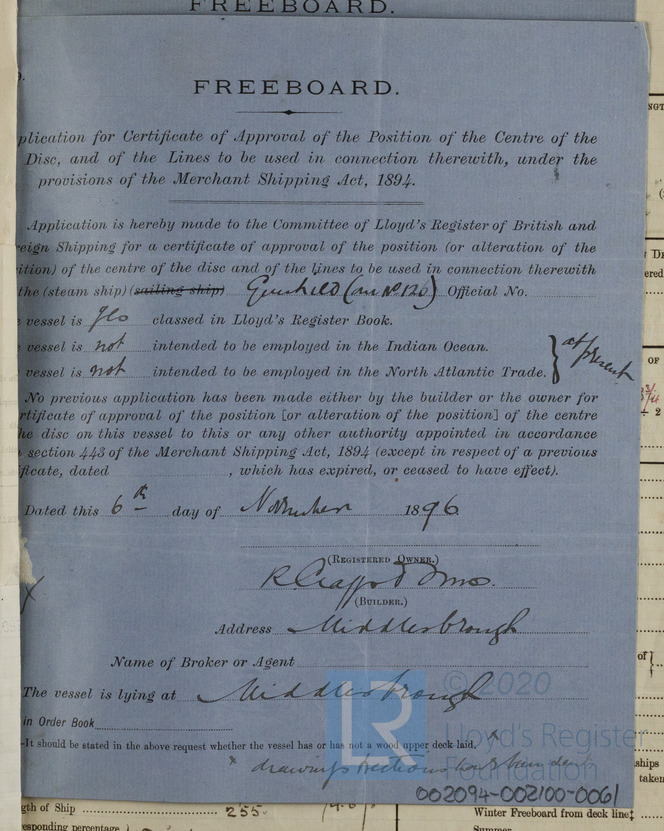 FREEBOARD.
FREEBOARD.
plication for Certificate of Approval of the Position of the Centre of the
Disc, and of the Lines to be used in connection therewith, under the
provisions of the Merchant Shipping Act, 1894.
Application is hereby made to the Committee of Lloyd's Register of British and
eign Shipping for a certificate of approval of the position (or alteration of the
ition) of the centre of the disc and of the lines to be used in connection therewith
the (steam ship) (sailing ship) (No 126) Official No.
vessel is yes classed in Lloyd's Register Book.
vessel is not intended to be employed in the Indian Ocean.
vessel is not intended to be employed in the North Atlantic Trade. } at present
No previous application has been made either by the builder or the owner for
rtificate of approval of the position [or alteration of the position] of the centre
he disc on this vessel to this or any other authority appointed in accordance
section 443 of the Merchant Shipping Act, 1894 (except in respect of a previous
ificate, dated , which has expired, or ceased to have effect).
Dated this 6th day of November 1896
(REGISTERED OWNER.)
R Craggs & Sons.
(BUILDER.)
Address Middlesbrough
Name of Broker or Agent
The vessel is lying at Middlesbrough
in Order Book
-It should be stated in the above request whether the vessel has or has not a wood upper deck laid.
LR
© 2020
Lloyd's Register
Foundation
002094-002100-0061
gth of Ship 255.
responding percentage
Winter Freeboard from deck line
Summer